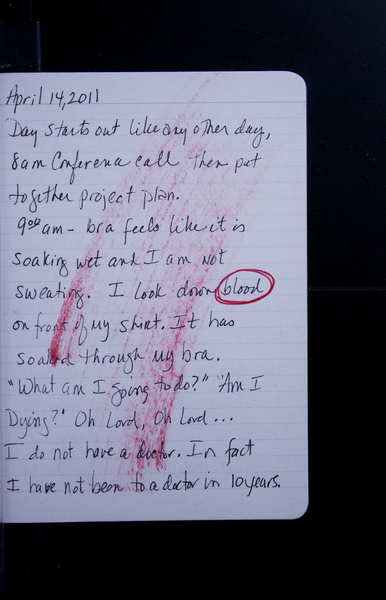 April 14, 2011
Day starts out like any other day,
8am Conference call then put
together project plan.
9:00 am - bra feels like it is
soaking wet and I am not
sweating. I look down blood
on front of my shirt. It has
soaked through my bra.
"What am I going to do?" "Am I
Dying?" Oh Lord, Oh Lord...
I do not have a doctor. In fact
I have not been to a doctor in 10 years.